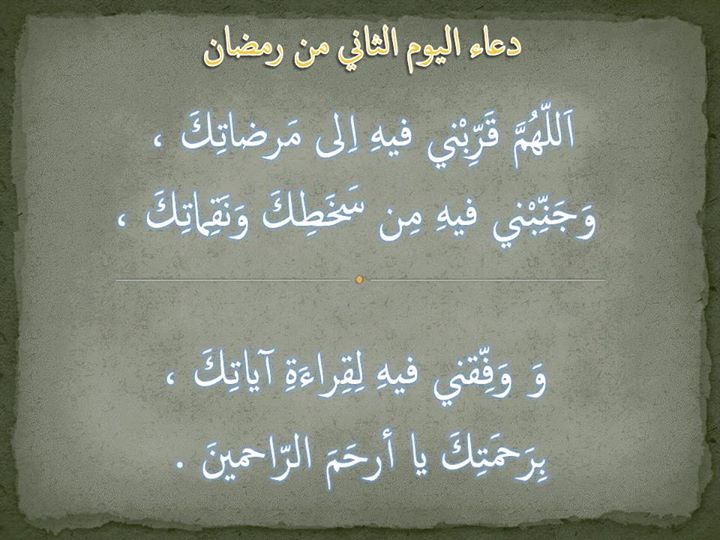 دعاء اليوم الثاني من رمضان
اَللّهُمَّ قَرِّبْني فيهِ اِلى مَرضاتِكَ ،
وَجَنِّبْني فيهِ مِن سَخَطِكَ وَنَقِماتِكَ ،
وَ وَفِّقني فيهِ لِقِراءَةِ آياتِكَ ،
بِرَحمَتِكَ يا أرحَمَ الرّاحمينَ .